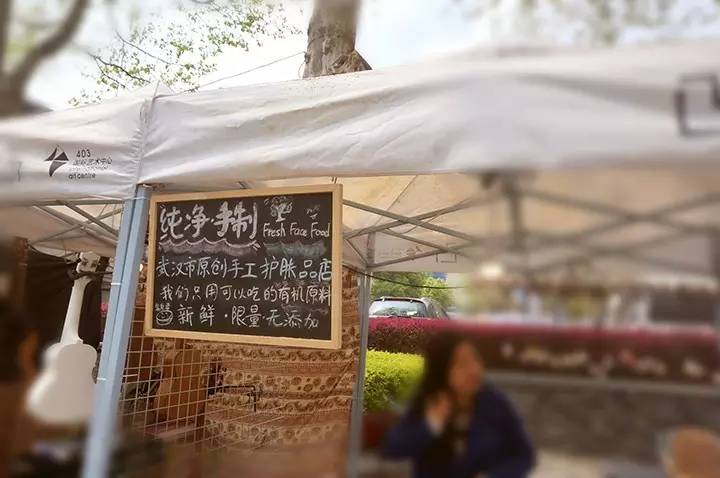 403
国际艺术中心
international
art centre
纯净·手制
Fresh Face Food
武汉市原创手工护肤品店
我们只用可以吃的有机原料
新鲜·限量·无添加